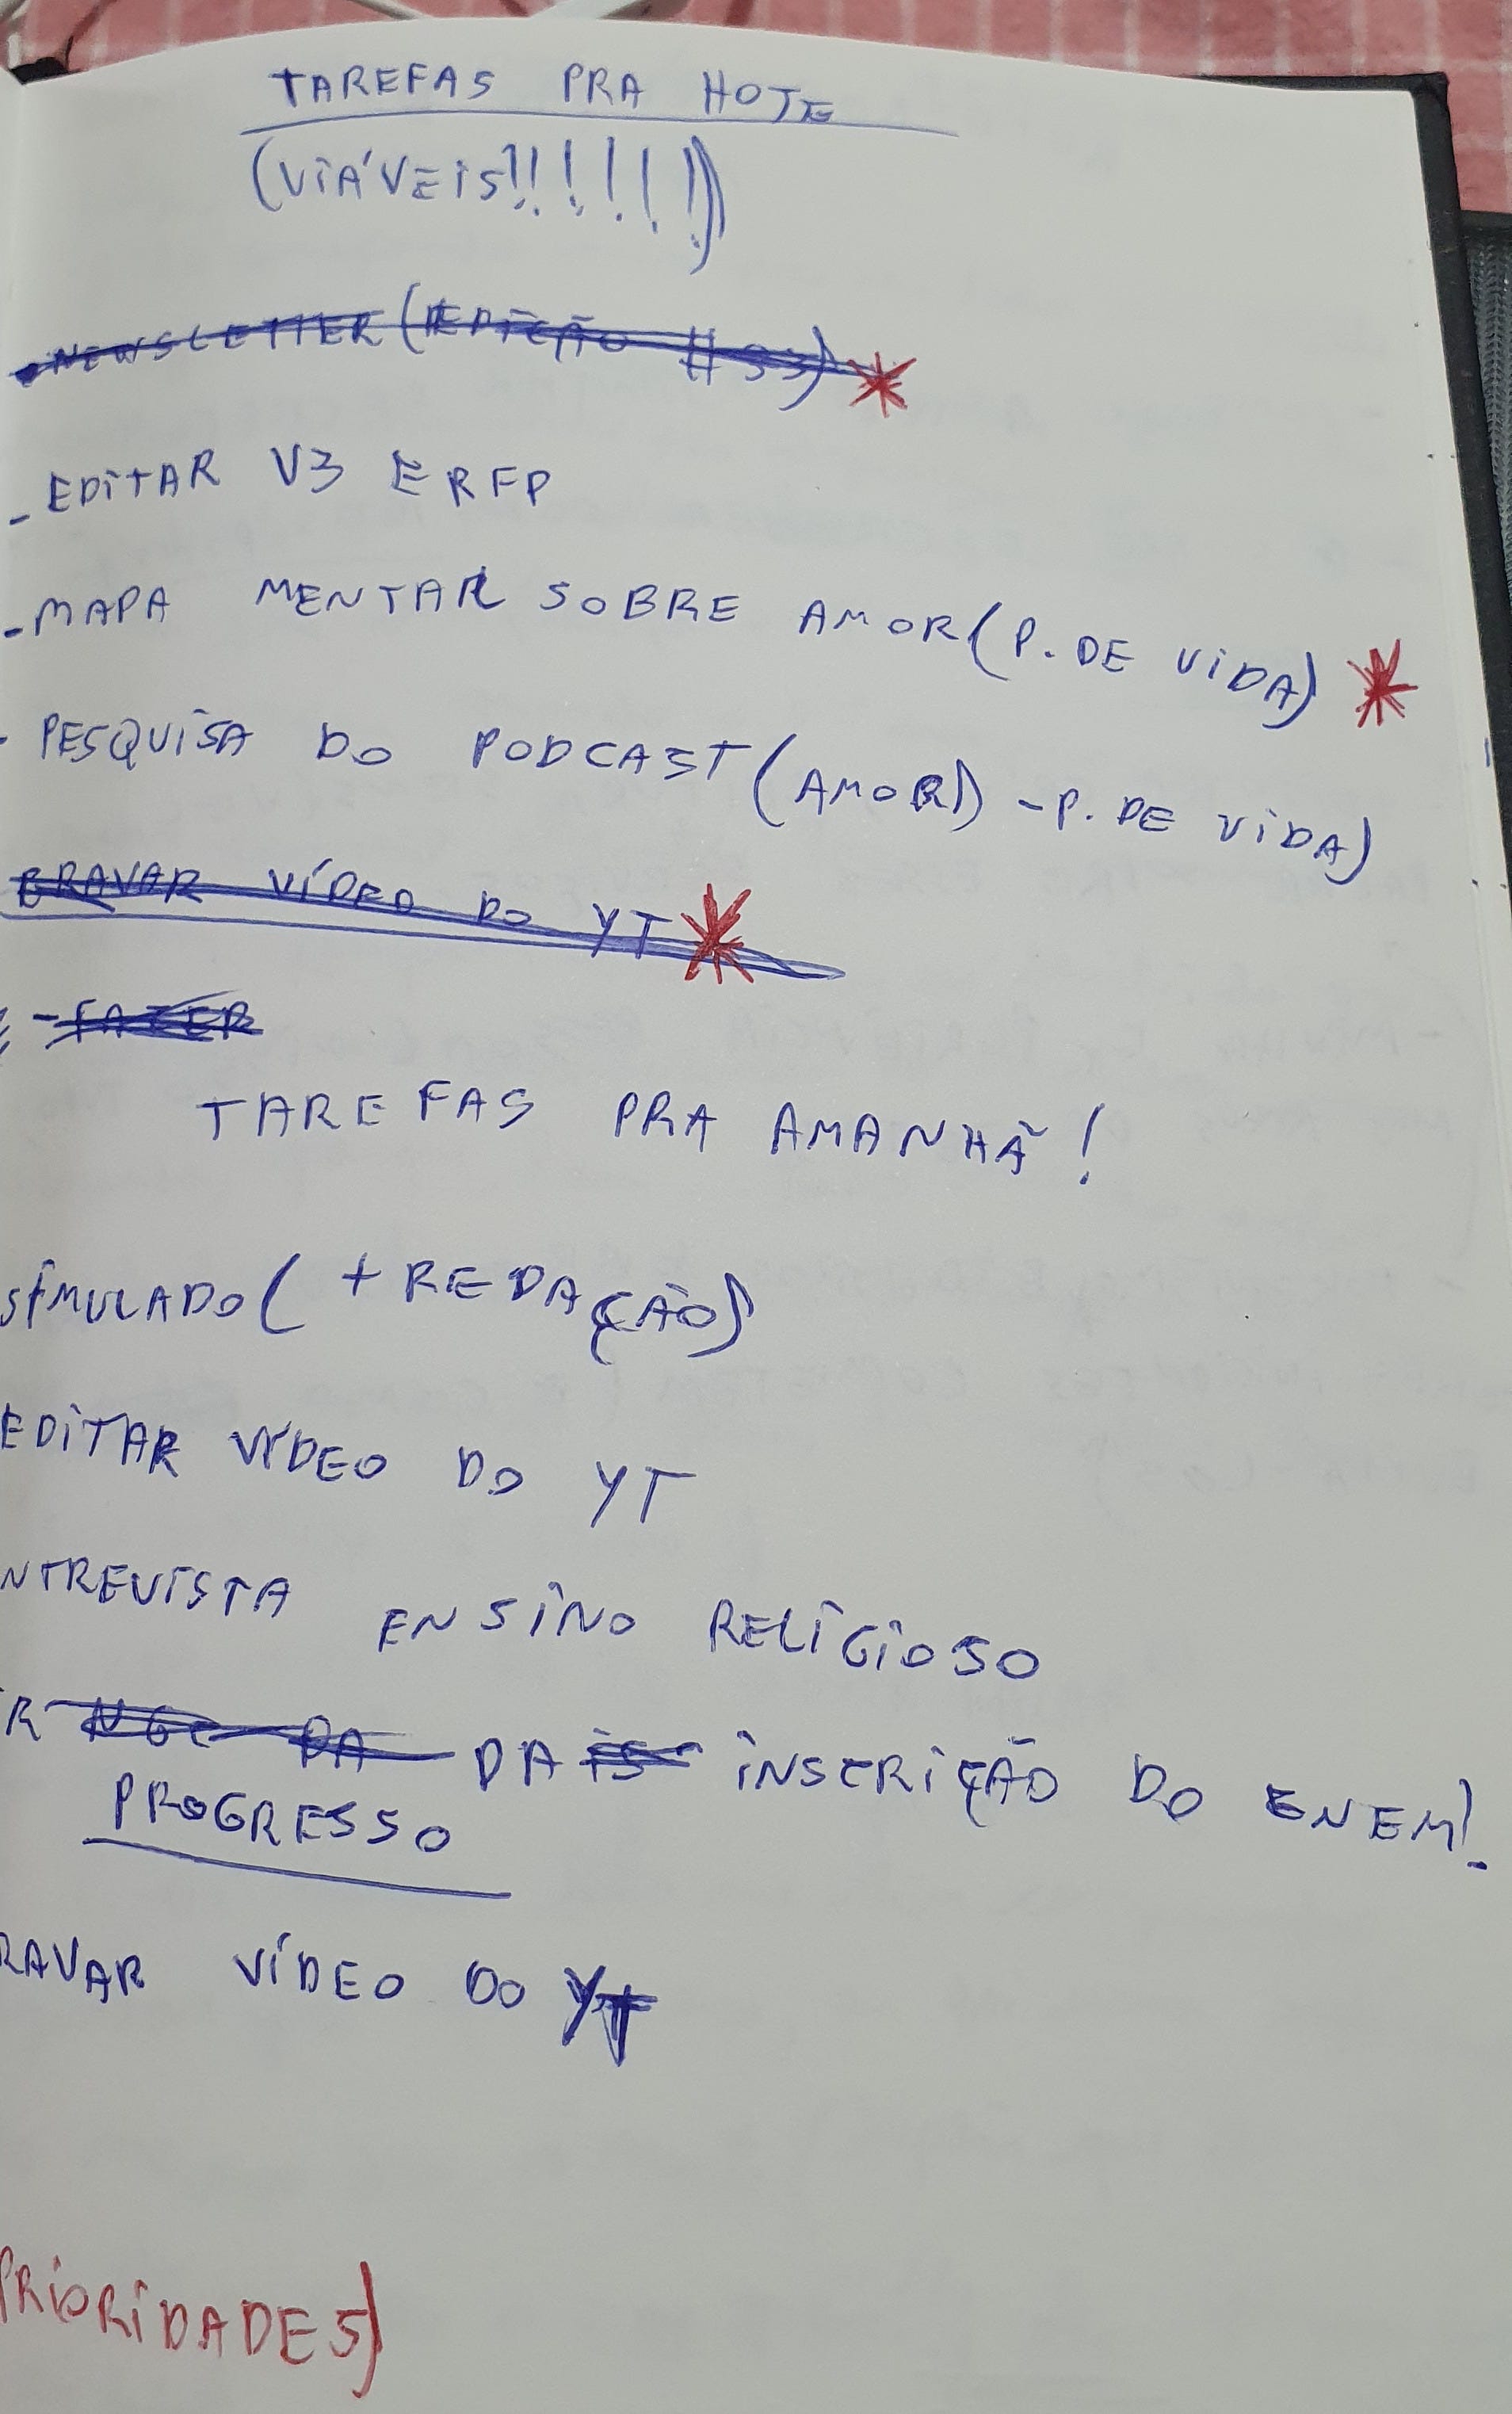 TAREFAS PRA HOJE
(VIÁVEIS!!!!!!)
- NEWSLETTER (EDIÇÃO #33) *
- EDITAR V3 ERFP
- MAPA MENTAL SOBRE AMOR (P. DE VIDA) *
- PESQUISA DO PODCAST (AMOR) - P. DE VIDA)
GRAVAR VÍDEO DO YT *
- FAZER
TAREFAS PRA AMANHÃ!
SIMULADO (+ REDAÇÃO)
EDITAR VÍDEO DO YT
NTREVISTA ENSINO RELIGIOSO
R DA INSCRIÇÃO DO ENEM!
PROGRESSO
RAVAR VÍDEO DO YT
PRIORIDADES)